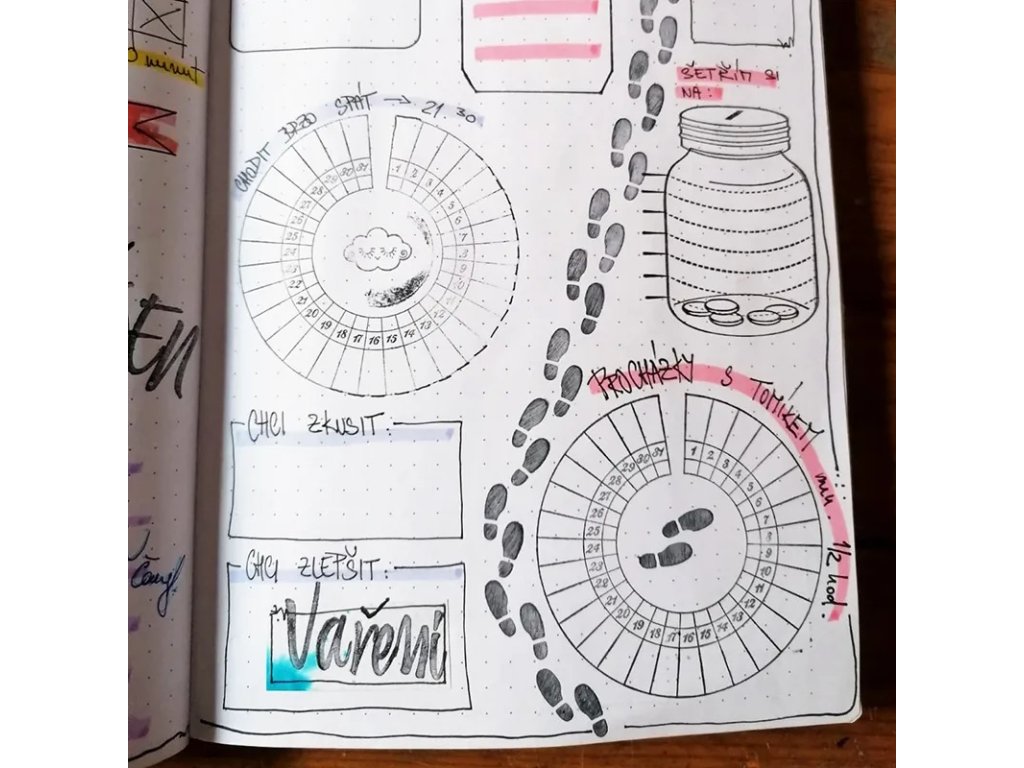 minut
ŠETŘÍM SI
NA:
CHODIT BRZO SPÁT → 21.30
1 2 3 4 5 6 7 8 9 10 11 12 13 14 15 16 17 18 19 20 21 22 23 24 25 26 27 28 29 30 31
PROCHÁZKY S TOMÍKEM min 1/2 hod.
1 2 3 4 5 6 7 8 9 10 11 12 13 14 15 16 17 18 19 20 21 22 23 24 25 26 27 28 29 30 31
CHCI ZKUSIT:
CHCI ZLEPŠIT:
Vaření